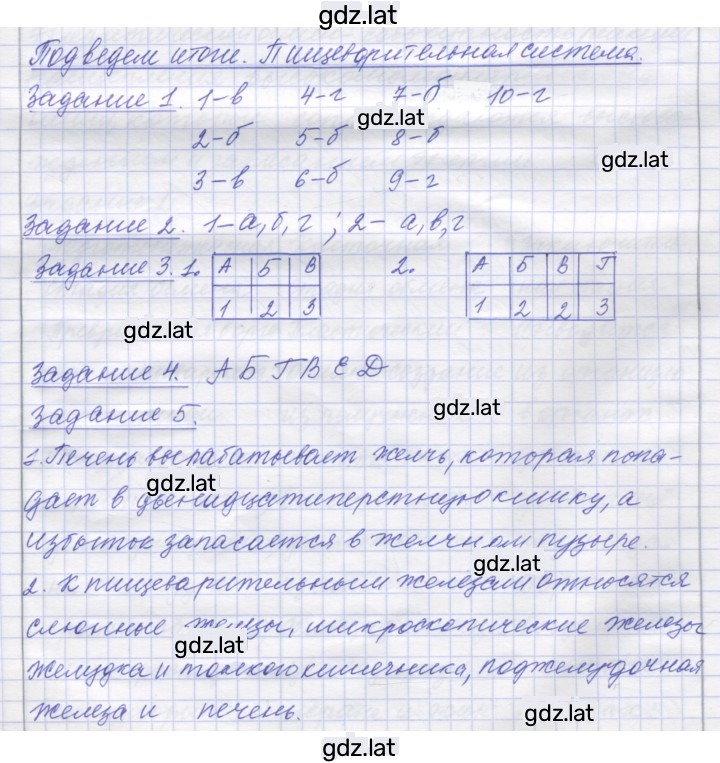 gdz.lat
Подведем итоги. Пищеварительная система.
Задание 1. 1-в 4-г 7-б 10-г
gdz.lat
2-б 5-б 8-б
gdz.lat
3-в 6-б 9-г
Задание 2. 1-а,б,г ; 2- а,в,г
Задание 3. 1. А Б В 2. А Б В Г
1 2 3 1 2 2 3
gdz.lat
Задание 4. А Б Г В Е Д
gdz.lat
Задание 5.
1. Печень вырабатывает желчь, которая попа-
gdz.lat
дает в двенадцатиперстную кишку, а
избыток запасается в желчном пузыре.
gdz.lat
2. К пищеварительным железам относятся
слюнные железы, микроскопические железы
gdz.lat
желудка и тонкого кишечника, поджелудочная
железа и печень.
gdz.lat
gdz.lat